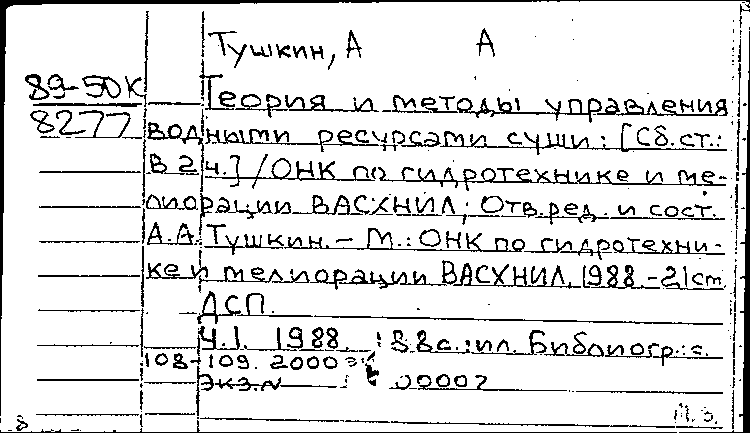 Тушкин, А А
89-50К
8277
Теория и методы управления
водными ресурсами суши: [Сб. ст.:
В 2 ч.] / ОНК по гидротехнике и ме-
лиорации ВАСХНИЛ; Отв. ред. и сост.
А.А. Тушкин. - М.: ОНК по гидротехни-
ке и мелиорации ВАСХНИЛ, 1988.-21см.
ДСП.
Ч.1. 1988. 88с.: ил. Библиогр.: с.
108-109. 2000 эк
экз.N 00007